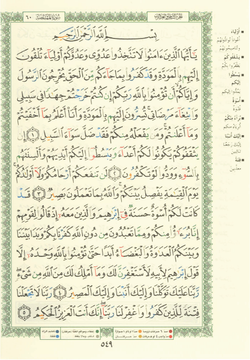 ٦٠
بِسْمِ ٱللَّهِ ٱلرَّحْمَٰنِ ٱلرَّحِيمِ
يَٰٓأَيُّهَا ٱلَّذِينَ ءَامَنُوا۟ لَا تَتَّخِذُوا۟ عَدُوِّى وَعَدُوَّكُمْ أَوْلِيَآءَ تُلْقُونَ
إِلَيْهِم بِٱلْمَوَدَّةِ وَقَدْ كَفَرُوا۟ بِمَا جَآءَكُم مِّنَ ٱلْحَقِّ يُخْرِجُونَ ٱلرَّسُولَ
وَإِيَّاكُمْ أَن تُؤْمِنُوا۟ بِٱللَّهِ رَبِّكُمْ إِن كُنتُمْ خَرَجْتُمْ جِهَٰدًا فِى سَبِيلِى
وَٱبْتِغَآءَ مَرْضَاتِى تُسِرُّونَ إِلَيْهِم بِٱلْمَوَدَّةِ وَأَنَا۠ أَعْلَمُ بِمَآ أَخْفَيْتُمْ
وَمَآ أَعْلَنتُمْ وَمَن يَفْعَلْهُ مِنكُمْ فَقَدْ ضَلَّ سَوَآءَ ٱلسَّبِيلِ ١ إِن
يَثْقَفُوكُمْ يَكُونُوا۟ لَكُمْ أَعْدَآءً وَيَبْسُطُوٓا۟ إِلَيْكُمْ أَيْدِيَهُمْ وَأَلْسِنَتَهُم
بِٱلسُّوٓءِ وَوَدُّوا۟ لَوْ تَكْفُرُونَ ٢ لَن تَنفَعَكُمْ أَرْحَامُكُمْ وَلَآ أَوْلَٰدُكُمْ
يَوْمَ ٱلْقِيَٰمَةِ يَفْصِلُ بَيْنَكُمْ وَٱللَّهُ بِمَا تَعْمَلُونَ بَصِيرٌ ٣ قَدْ
كَانَتْ لَكُمْ أُسْوَةٌ حَسَنَةٌ فِىٓ إِبْرَٰهِيمَ وَٱلَّذِينَ مَعَهُۥٓ إِذْ قَالُوا۟ لِقَوْمِهِمْ
إِنَّا بُرَءَٰٓؤُا۟ مِنكُمْ وَمِمَّا تَعْبُدُونَ مِن دُونِ ٱللَّهِ كَفَرْنَا بِكُمْ وَبَدَا بَيْنَنَا
وَبَيْنَكُمُ ٱلْعَدَٰوَةُ وَٱلْبَغْضَآءُ أَبَدًا حَتَّىٰ تُؤْمِنُوا۟ بِٱللَّهِ وَحْدَهُۥٓ إِلَّا
قَوْلَ إِبْرَٰهِيمَ لِأَبِيهِ لَأَسْتَغْفِرَنَّ لَكَ وَمَآ أَمْلِكُ لَكَ مِنَ ٱللَّهِ مِن شَىْءٍ
رَّبَّنَا عَلَيْكَ تَوَكَّلْنَا وَإِلَيْكَ أَنَبْنَا وَإِلَيْكَ ٱلْمَصِيرُ ٤ رَبَّنَا لَا تَجْعَلْنَا
فِتْنَةً لِّلَّذِينَ كَفَرُوا۟ وَٱغْفِرْ لَنَا رَبَّنَآ إِنَّكَ أَنتَ ٱلْعَزِيزُ ٱلْحَكِيمُ ٥
٥٤٩